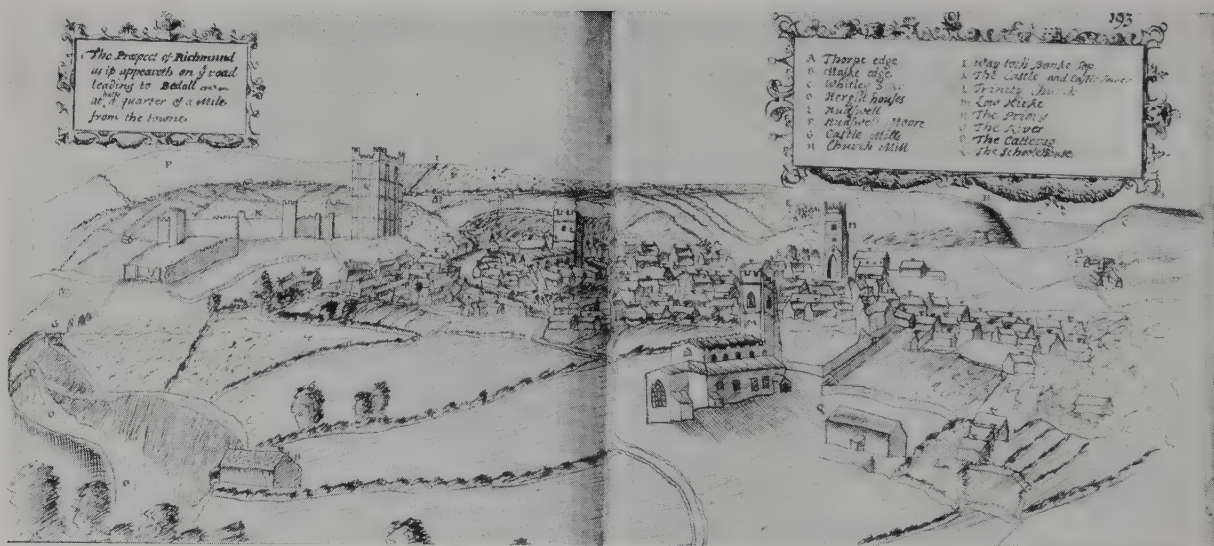 The Prospect of Richmund
as it appeareth on ye road
leading to Bedall
at halfe a quarter of a Mile
from the towne
193
A Thorpe edge
B Maske edge
C Whitley
D Herpid houses
E Hudswell
F Hudswell Moore
G Castle Mills
H Church Mill
I Way to the Banke Top
K The Castle and Castle tower
L Trinity Church
M Low Kirke
N The Priory
O The River
P The
Q The Schoolehouse